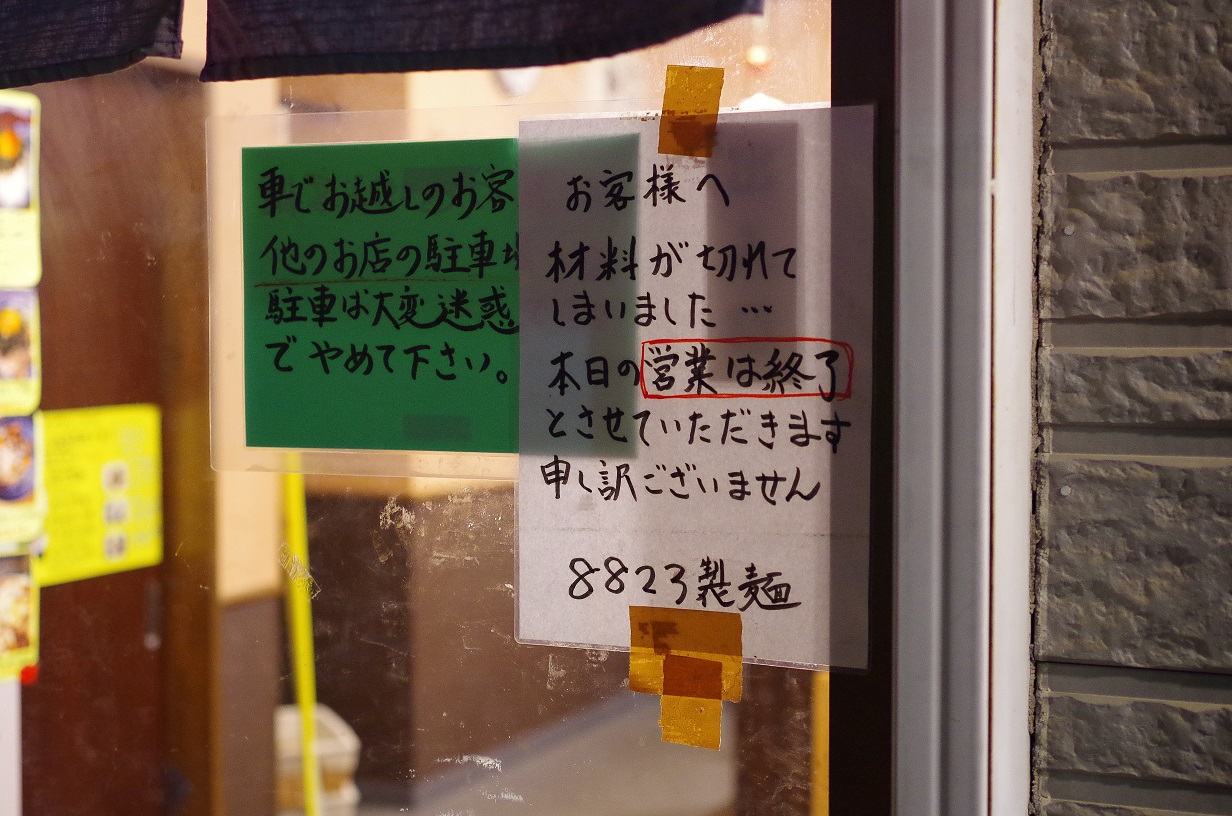 車でお越しのお客
他のお店の駐車
駐車は大変迷惑
でやめて下さい。
お客様へ
材料が切れて
しまいました…
本日の営業は終了
とさせていただきます
申し訳ございません
8823製麺